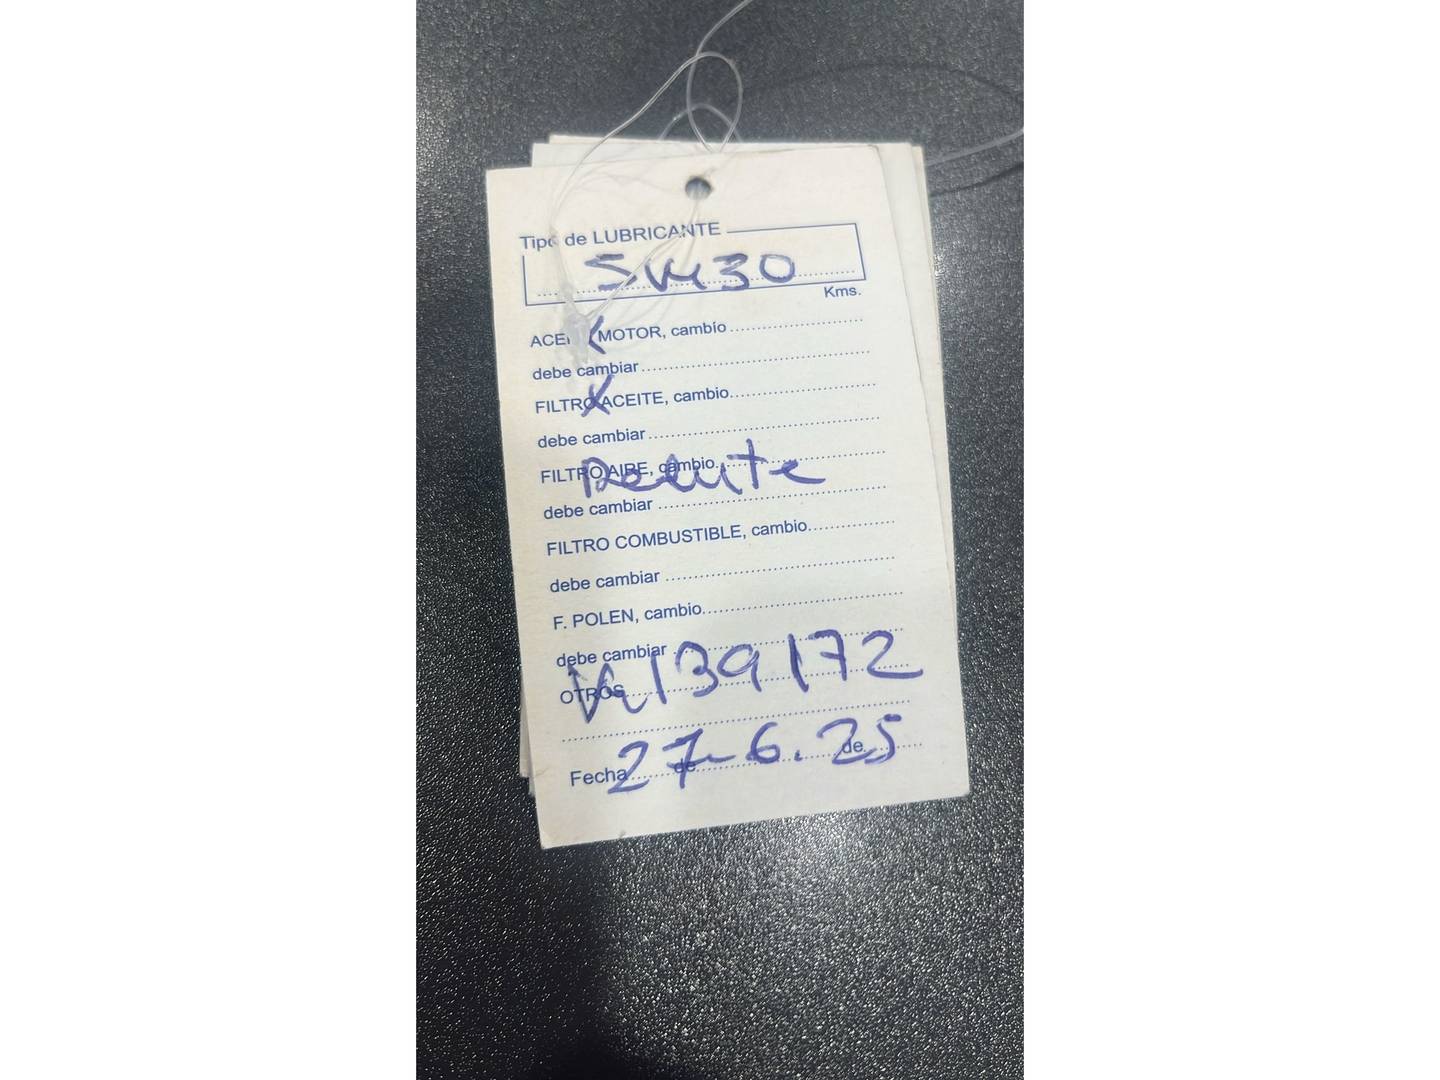 Tipo de LUBRICANTE
5W30
Kms.
ACEI MOTOR, cambio
debe cambiar
FILTRO X ACEITE, cambio
debe cambiar
FILTRO AIRE, cambio
debe cambiar
FILTRO COMBUSTIBLE, cambio
debe cambiar
F. POLEN, cambio
debe cambiar
K 139172
OTROS
Fecha 27 de 6. de 25